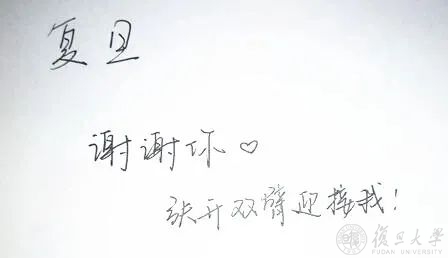 复旦
谢谢你♡
张开双臂迎接我!
復旦大學
FUDAN UNIVERSITY